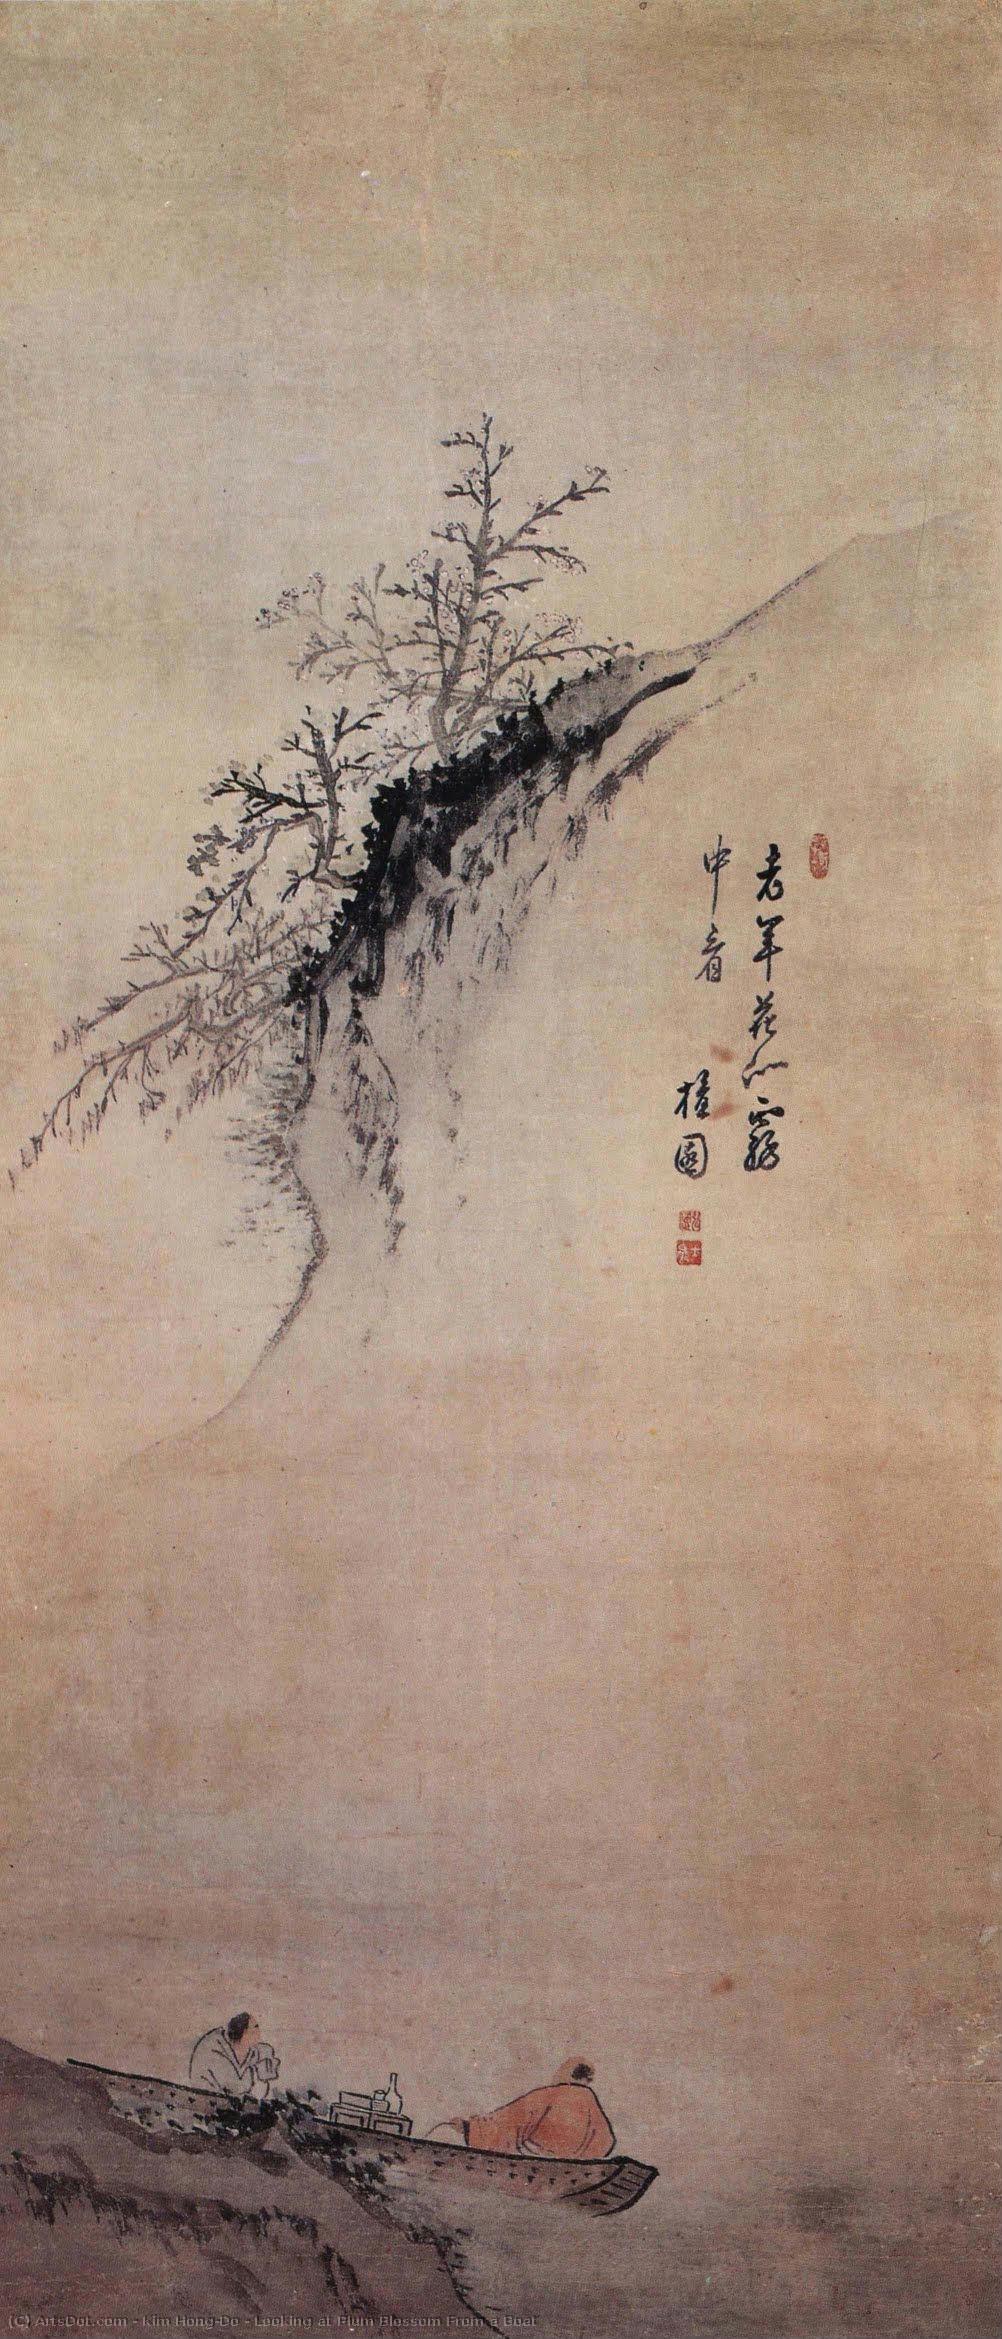 老年花似霧
中看
檀園
(C) ArtsDot.com - Kim Hong-Do - Looking at Plum Blossom From a Boat